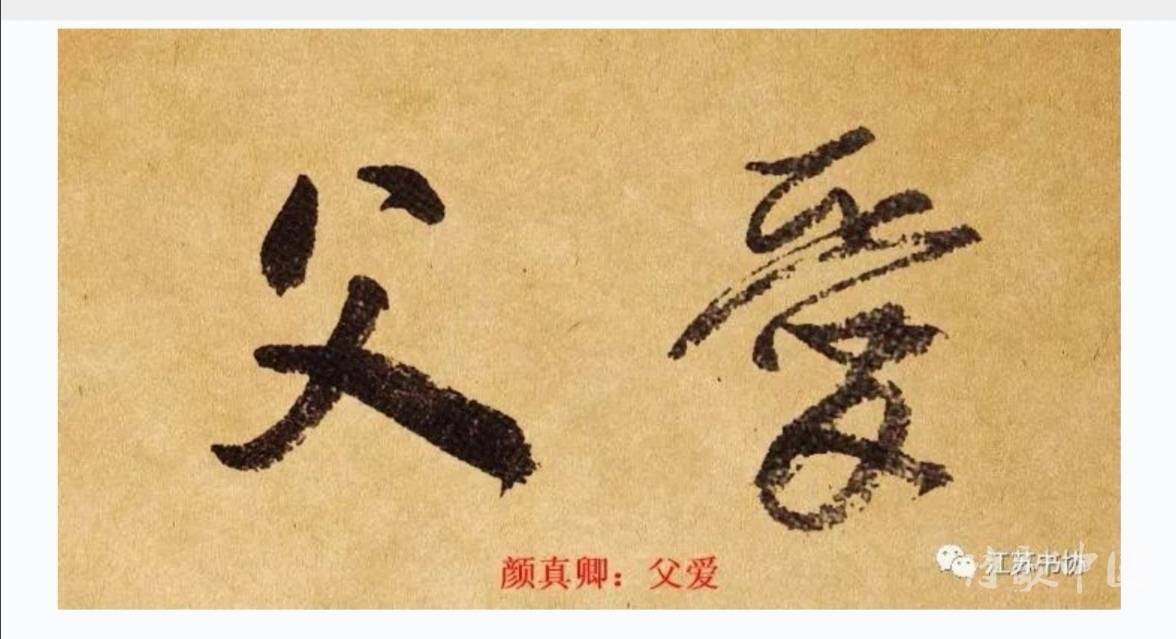 父爱
颜真卿：父爱
江苏书协